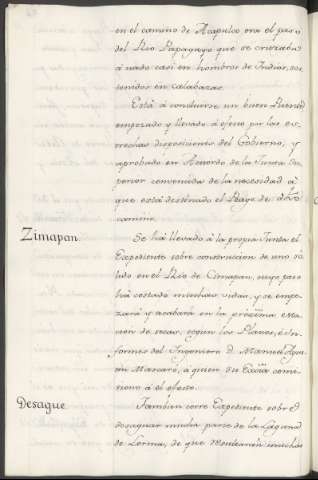 en el camino de Acapulco era el paso
del Rio Papagayo que se cruzaba
á nado casi en hombros de Indios, sos
tenidos en calabazas.
Está á concluirse un buen Puente
empezado y llevado á efecto por las es
trechas disposiciones del Gobierno, y
aprobado en Acuerdo de la Junta Su
perior convencida de la necesidad á
que está destinado el Peage de dho
camino.
Zimapan.
Se há llevado á la propia Junta el
Expediente sobre construccion de uno so
lido en el Rio de Cimapan, cuyo paso
há costado muchas vidas, y se empe
zará y acabará en la procsima esta
cion de secas, segun los Planes, é in
formes del Ingeniero D. Manuel Agus
tin Mascaró, á quien Su Exciâ comi
sionó á el efecto.
Desague
Tambien corre Expediente sobre
desaguar mucha parte de la Laguna
de Lerma, de que resultarán muchas